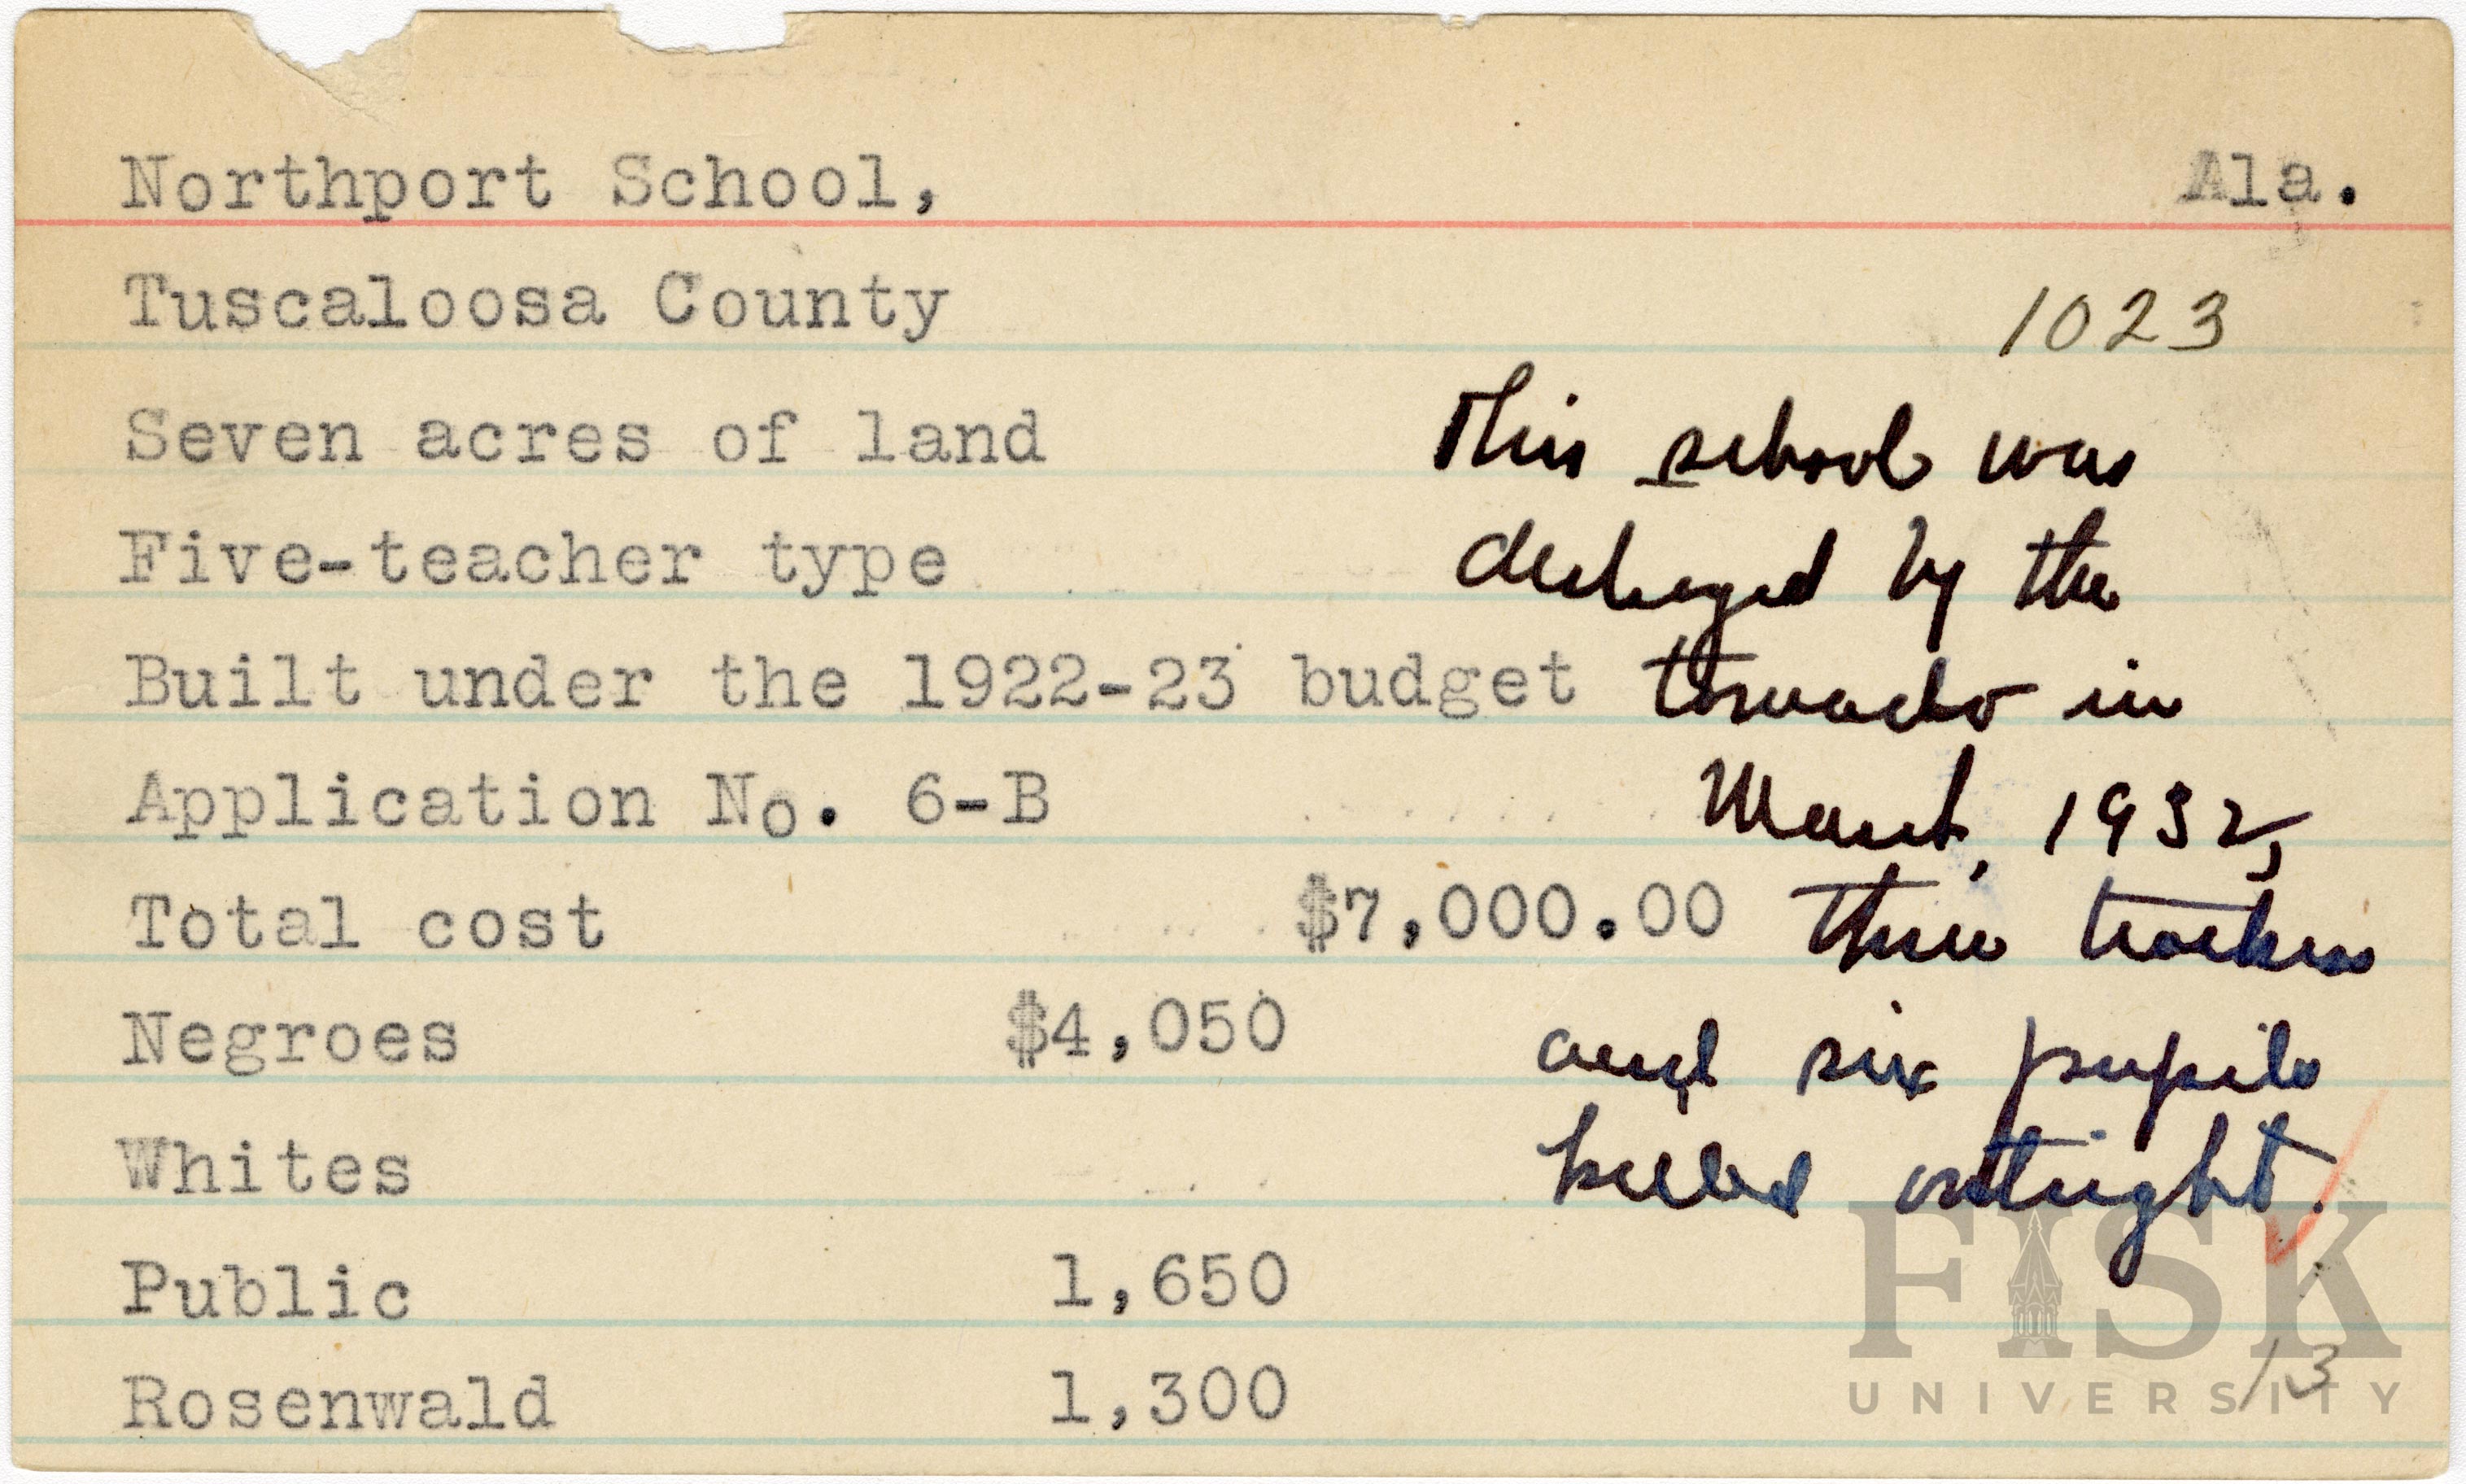 Northport School, Ala.
Tuscaloosa County 1023
Seven acres of land
This school was
Five-teacher type
destroyed by the
Built under the 1922-23 budget
tornado in
Application No. 6-B
March, 1932,
Total cost $7,000.00
three teachers
Negroes $4,050
and six pupils
Whites
killed outright.
Public 1,650
Rosenwald 1,300
13
FISK
UNIVERSITY